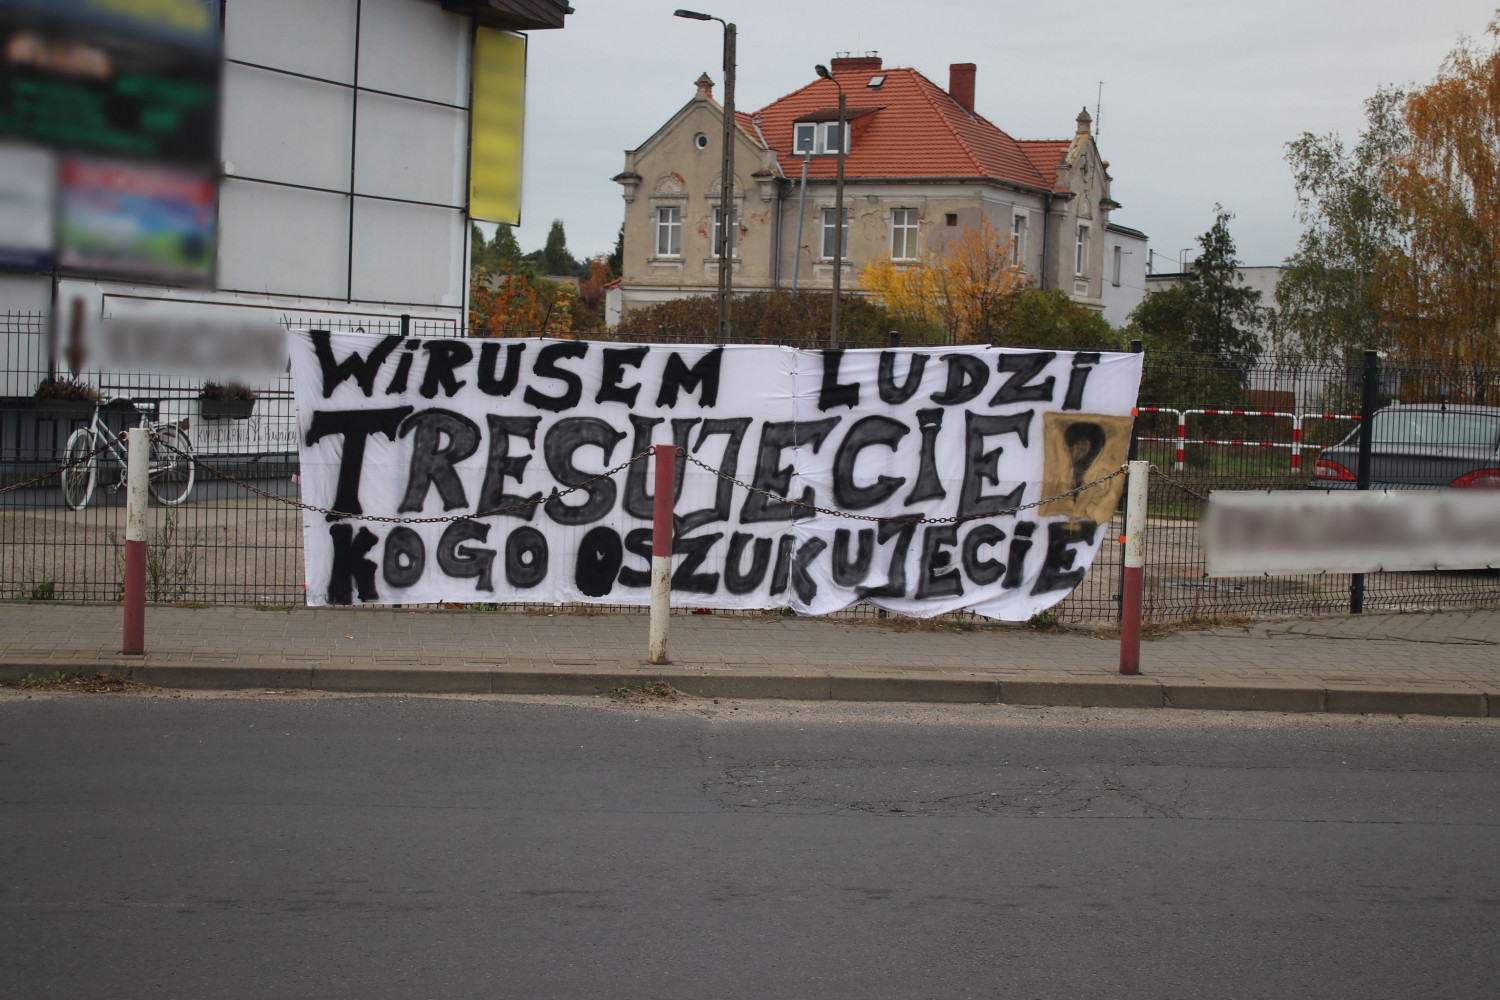 WiRUSEM LUDZi
TRESUJECiE ?
KOGO OSZUKUJECiE